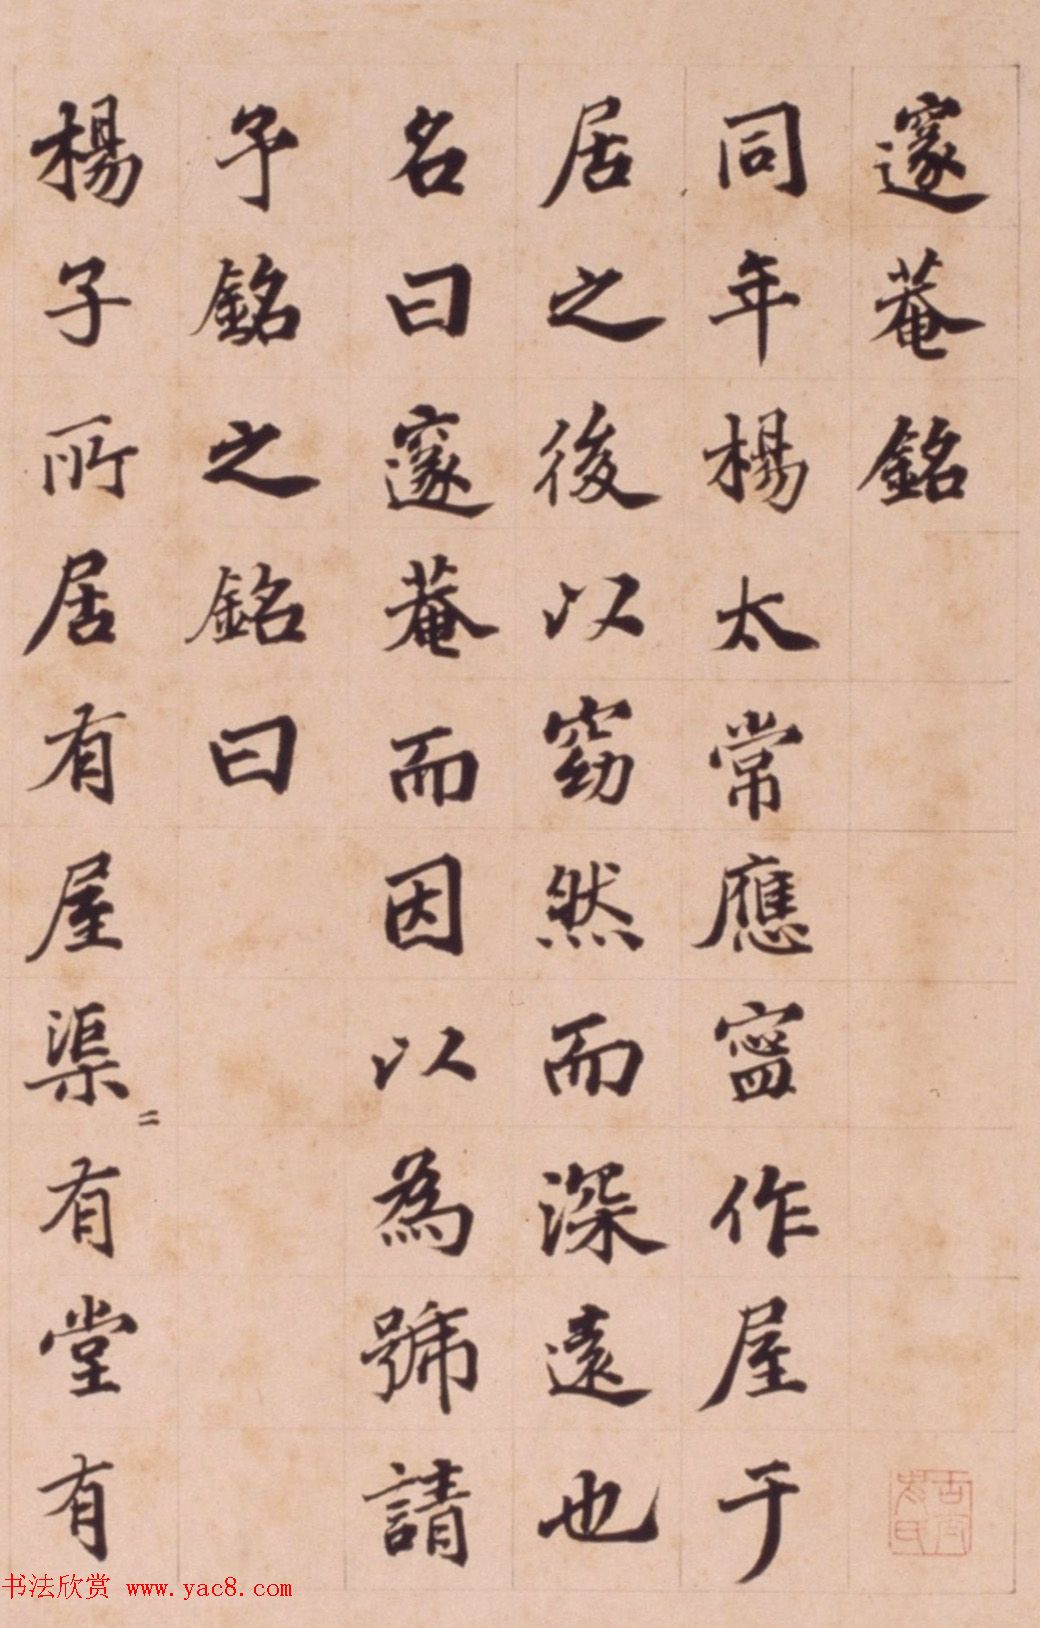 邃菴銘
同年楊太常應寧作屋于
居之後以窈然而深遠也
名曰邃菴而因以為號請
予銘之銘曰
楊子所居有屋渠〻有堂有
书法欣赏 www.yac8.com